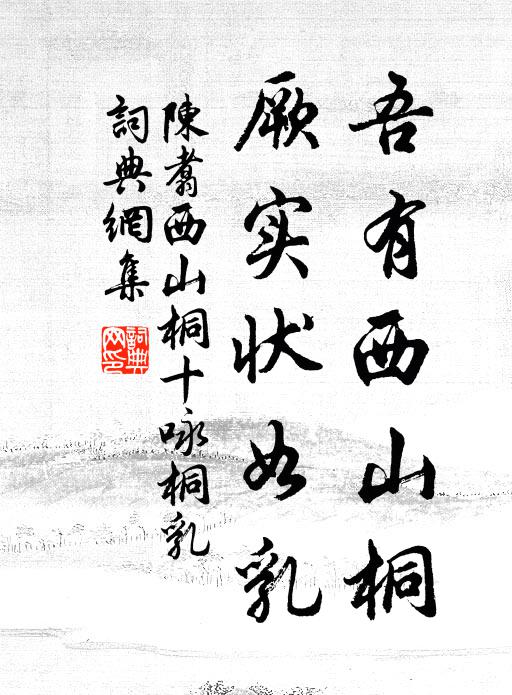 吾有西山桐
厥实状如乳
陳翥西山桐十咏桐乳
詞典網集
詞典網印